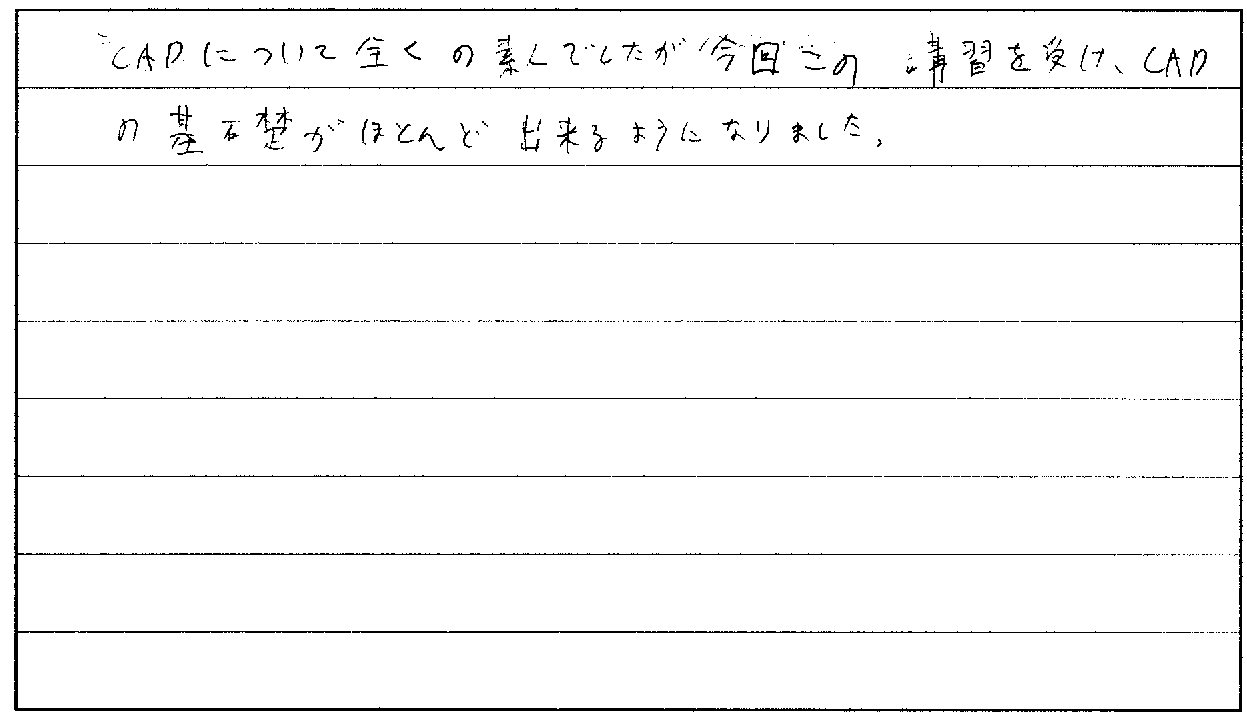 CADについて全くの素人でしたが今回この講習を受け、CAD
の基礎がほとんど出来るようになりました。